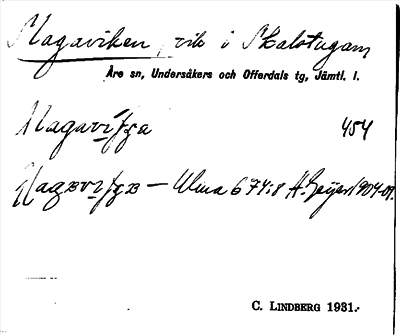 Nagaviken, vik i Skalstugan
Åre sn, Undersåkers och Offerdals tg, Jämtl. l.
454
— Ulma 674:8 A. Geijer 1904-09.
C. LINDBERG 1931.